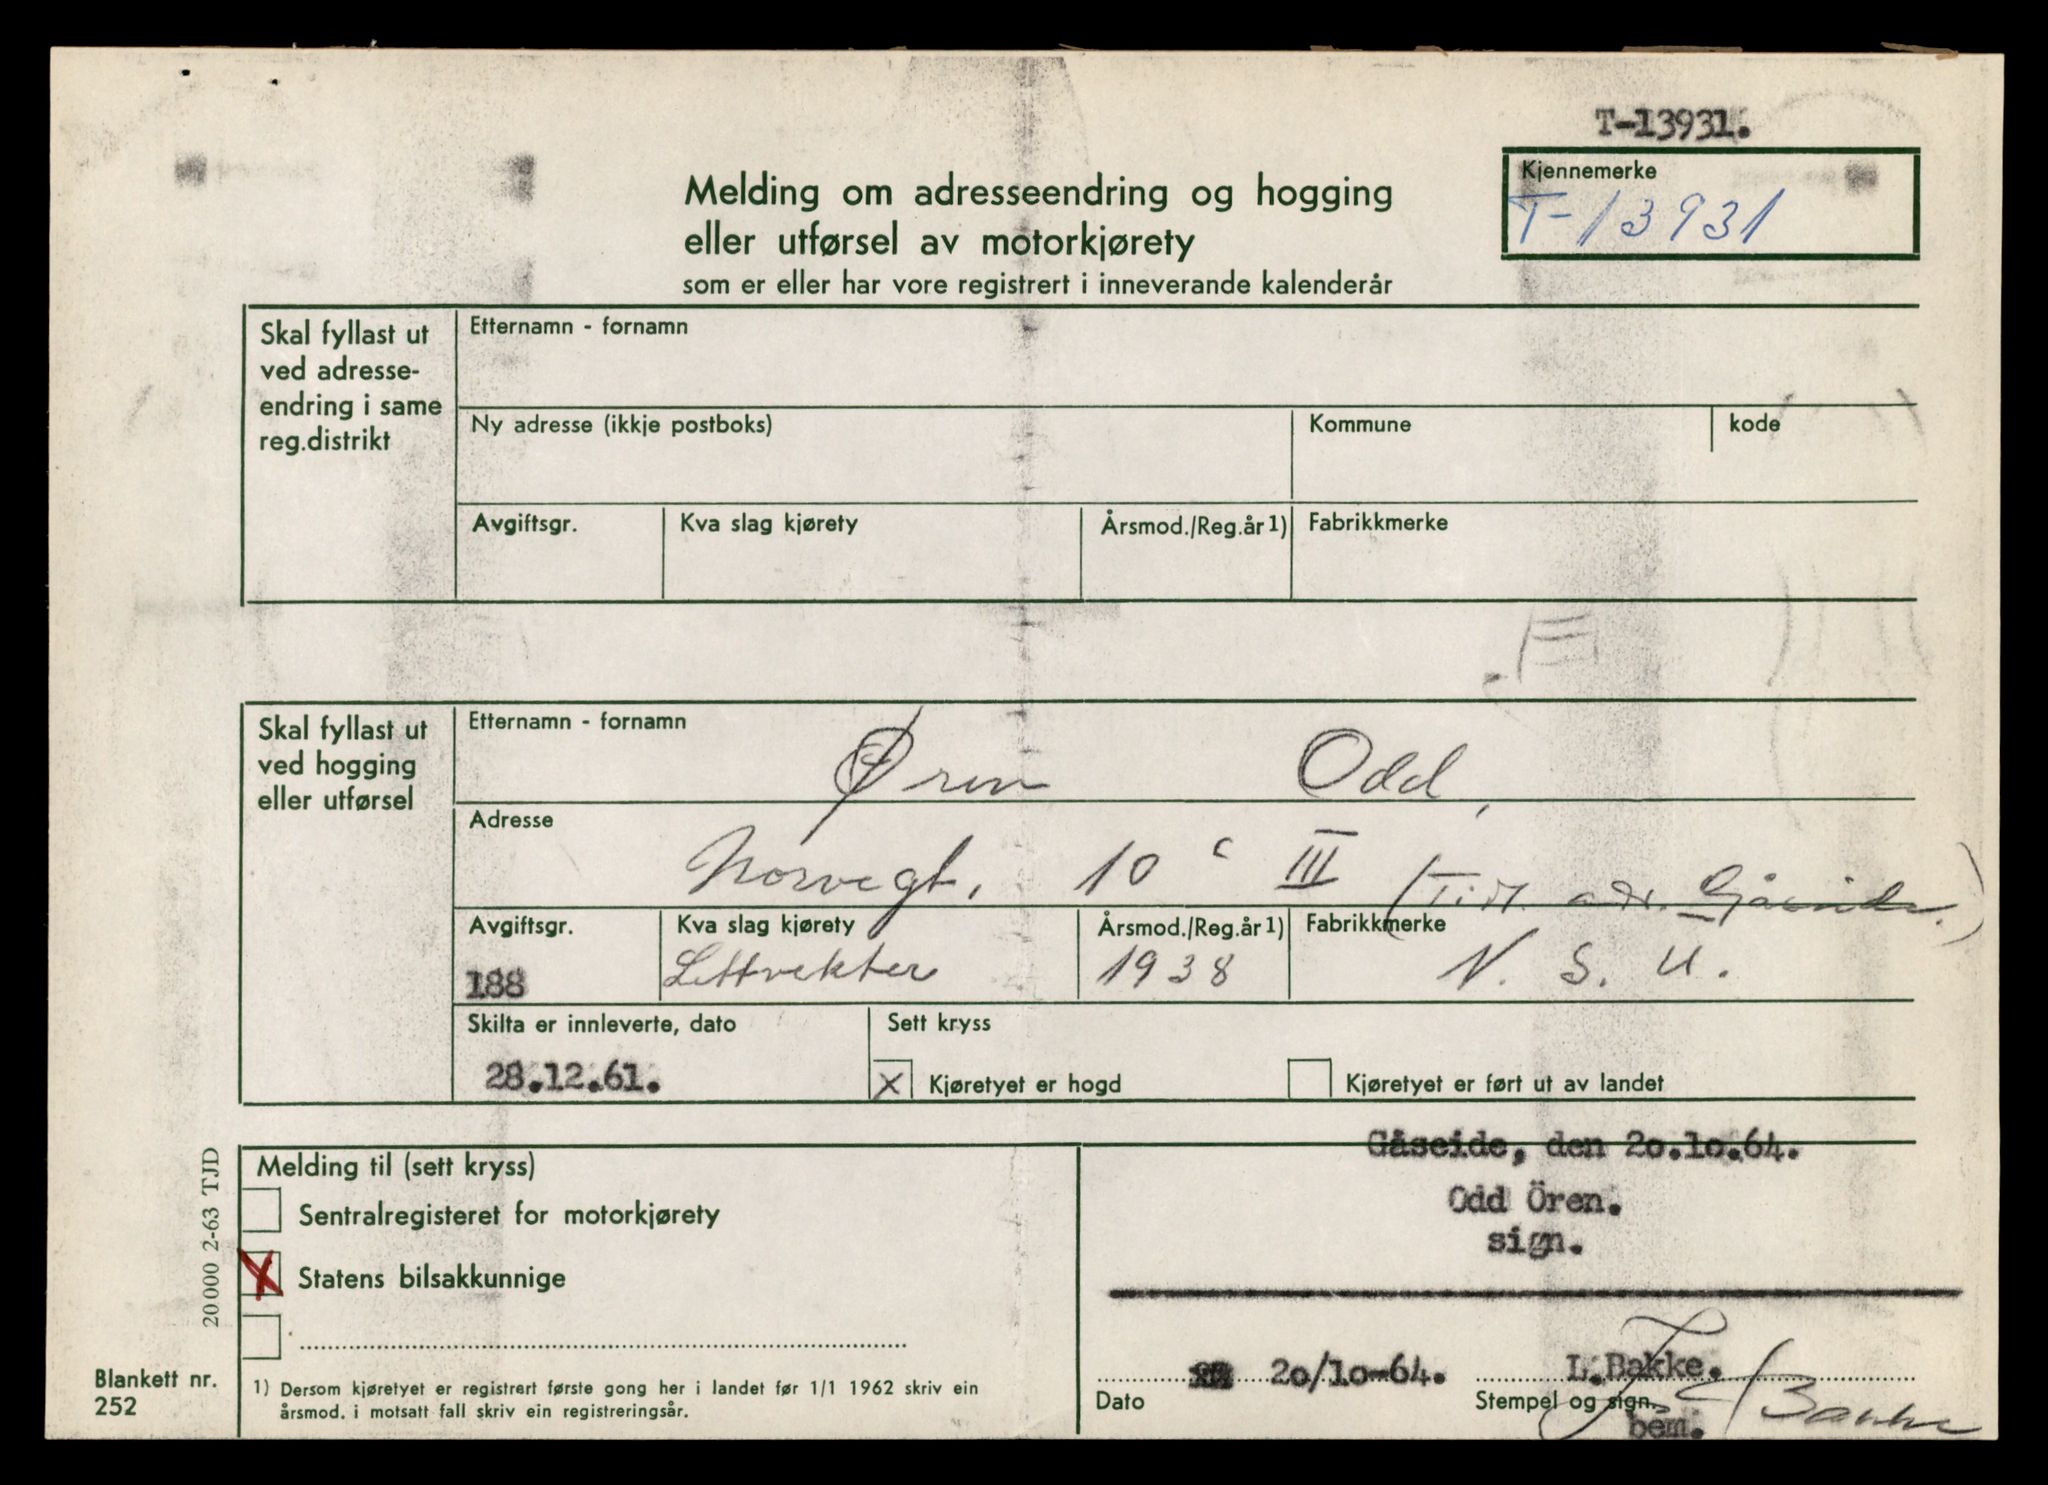 T-13931.
Kjennemerke
T-13931
Melding om adresseendring og hogging
eller utførsel av motorkjørety
som er eller har vore registrert i inneverande kalenderår
Skal fyllast ut
ved adresse-
endring i same
reg.distrikt
Etternamn - fornamn
Ny adresse (ikkje postboks)
Kommune
kode
Avgiftsgr.
Kva slag kjørety
Årsmod./Reg.år 1)
Fabrikkmerke
Skal fyllast ut
ved hogging
eller utførsel
Etternamn - fornamn
Øren Odd,
Adresse
Norvegt. 10 c III (Tidl. adr. Gåseide.)
Avgiftsgr.
188
Kva slag kjørety
Lettvekter
Årsmod./Reg.år 1)
1938
Fabrikkmerke
N. S. U.
Skilta er innleverte, dato
28.12.61.
Sett kryss
X Kjøretyet er hogd
Kjøretyet er ført ut av landet
Melding til (sett kryss)
Sentralregisteret for motorkjørety
X Statens bilsakkunnige
Gåseide, den 20.10.64.
Odd Ören.
sign.
20/10-64.
Dato
L.Bakke.
Stempel og sign.
bem.
L Bakke
1) Dersom kjøretyet er registrert første gong her i landet før 1/1 1962 skriv ein
årsmod. i motsatt fall skriv ein registreringsår.
20 000 2-63 TJD
Blankett nr.
252